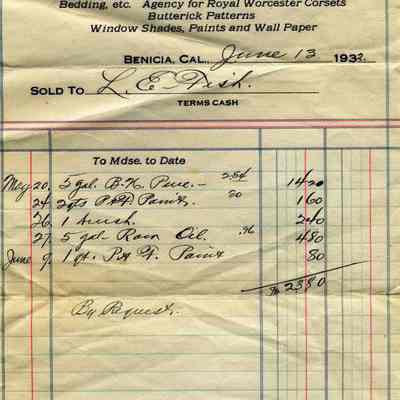 Bedding, etc. Agency for Royal Worcester Corsets
Butterick Patterns
Window Shades, Paints and Wall Paper
BENICIA, CAL., June 13 1932.
SOLD TO L. E. Fish.
TERMS CASH
To Mdse. to Date
May 20. 5 gal. B.H. 2.84 14 20
24 2 qts P & F Paint. 80 1 60
26. 1 brush. 2 40
27. 5 gal- Raw Oil. .96 4 80
June 9. 1 qt. P & F. Paint 80
23 80
By Request.